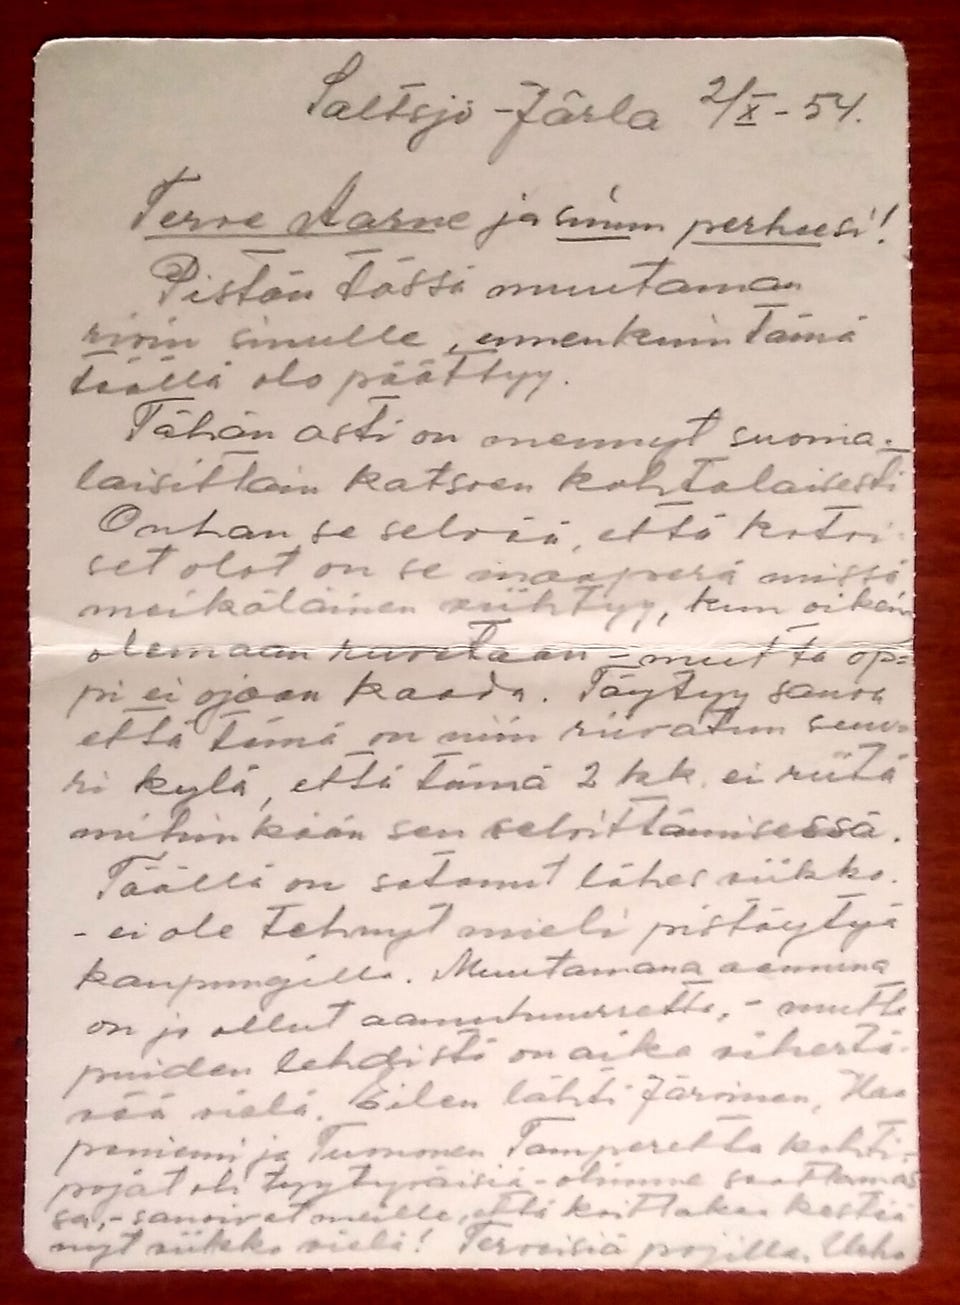 Saltsjö-Järla 2/X-54.
Terve Aarne ja sinun perheesi!
Pistän tässä muutaman
rivin sinulle, ennenkuin tämä
täällä olo päättyy.
Tähän asti on mennyt suoma-
laisittain katsoen kohtalaisesti
Onhan se selvää, että kotoi-
set olot on se maaperä missä
meikäläinen viihtyy, kun oikein
olemaan ruvetaan - mutta op=
pi ei ojaan kaada. Täytyy sanoa
että tämä on niin riivatun suu-
ri kylä, että tämä 2 kk. ei riitä
mihinkään sen selvittämisessä.
Täällä on satanut lähes viikko.
- ei ole tehnyt mieli pistäytyä
kaupungilla. Muutamana aamuna
on jo ollut aamuhuurretta, - mutta
puiden lehdistö on aika vihertä-
vää vielä. Eilen lähti Järvinen, Haa
paniemi ja Tuomonen Tamperetta kohti,-
pojat oli tyytyväisiä - olimme saattamas
sa, - sanoivat meille, että koittakaa kestää
nyt viikko vielä! Terveisiä pojilla. Urho